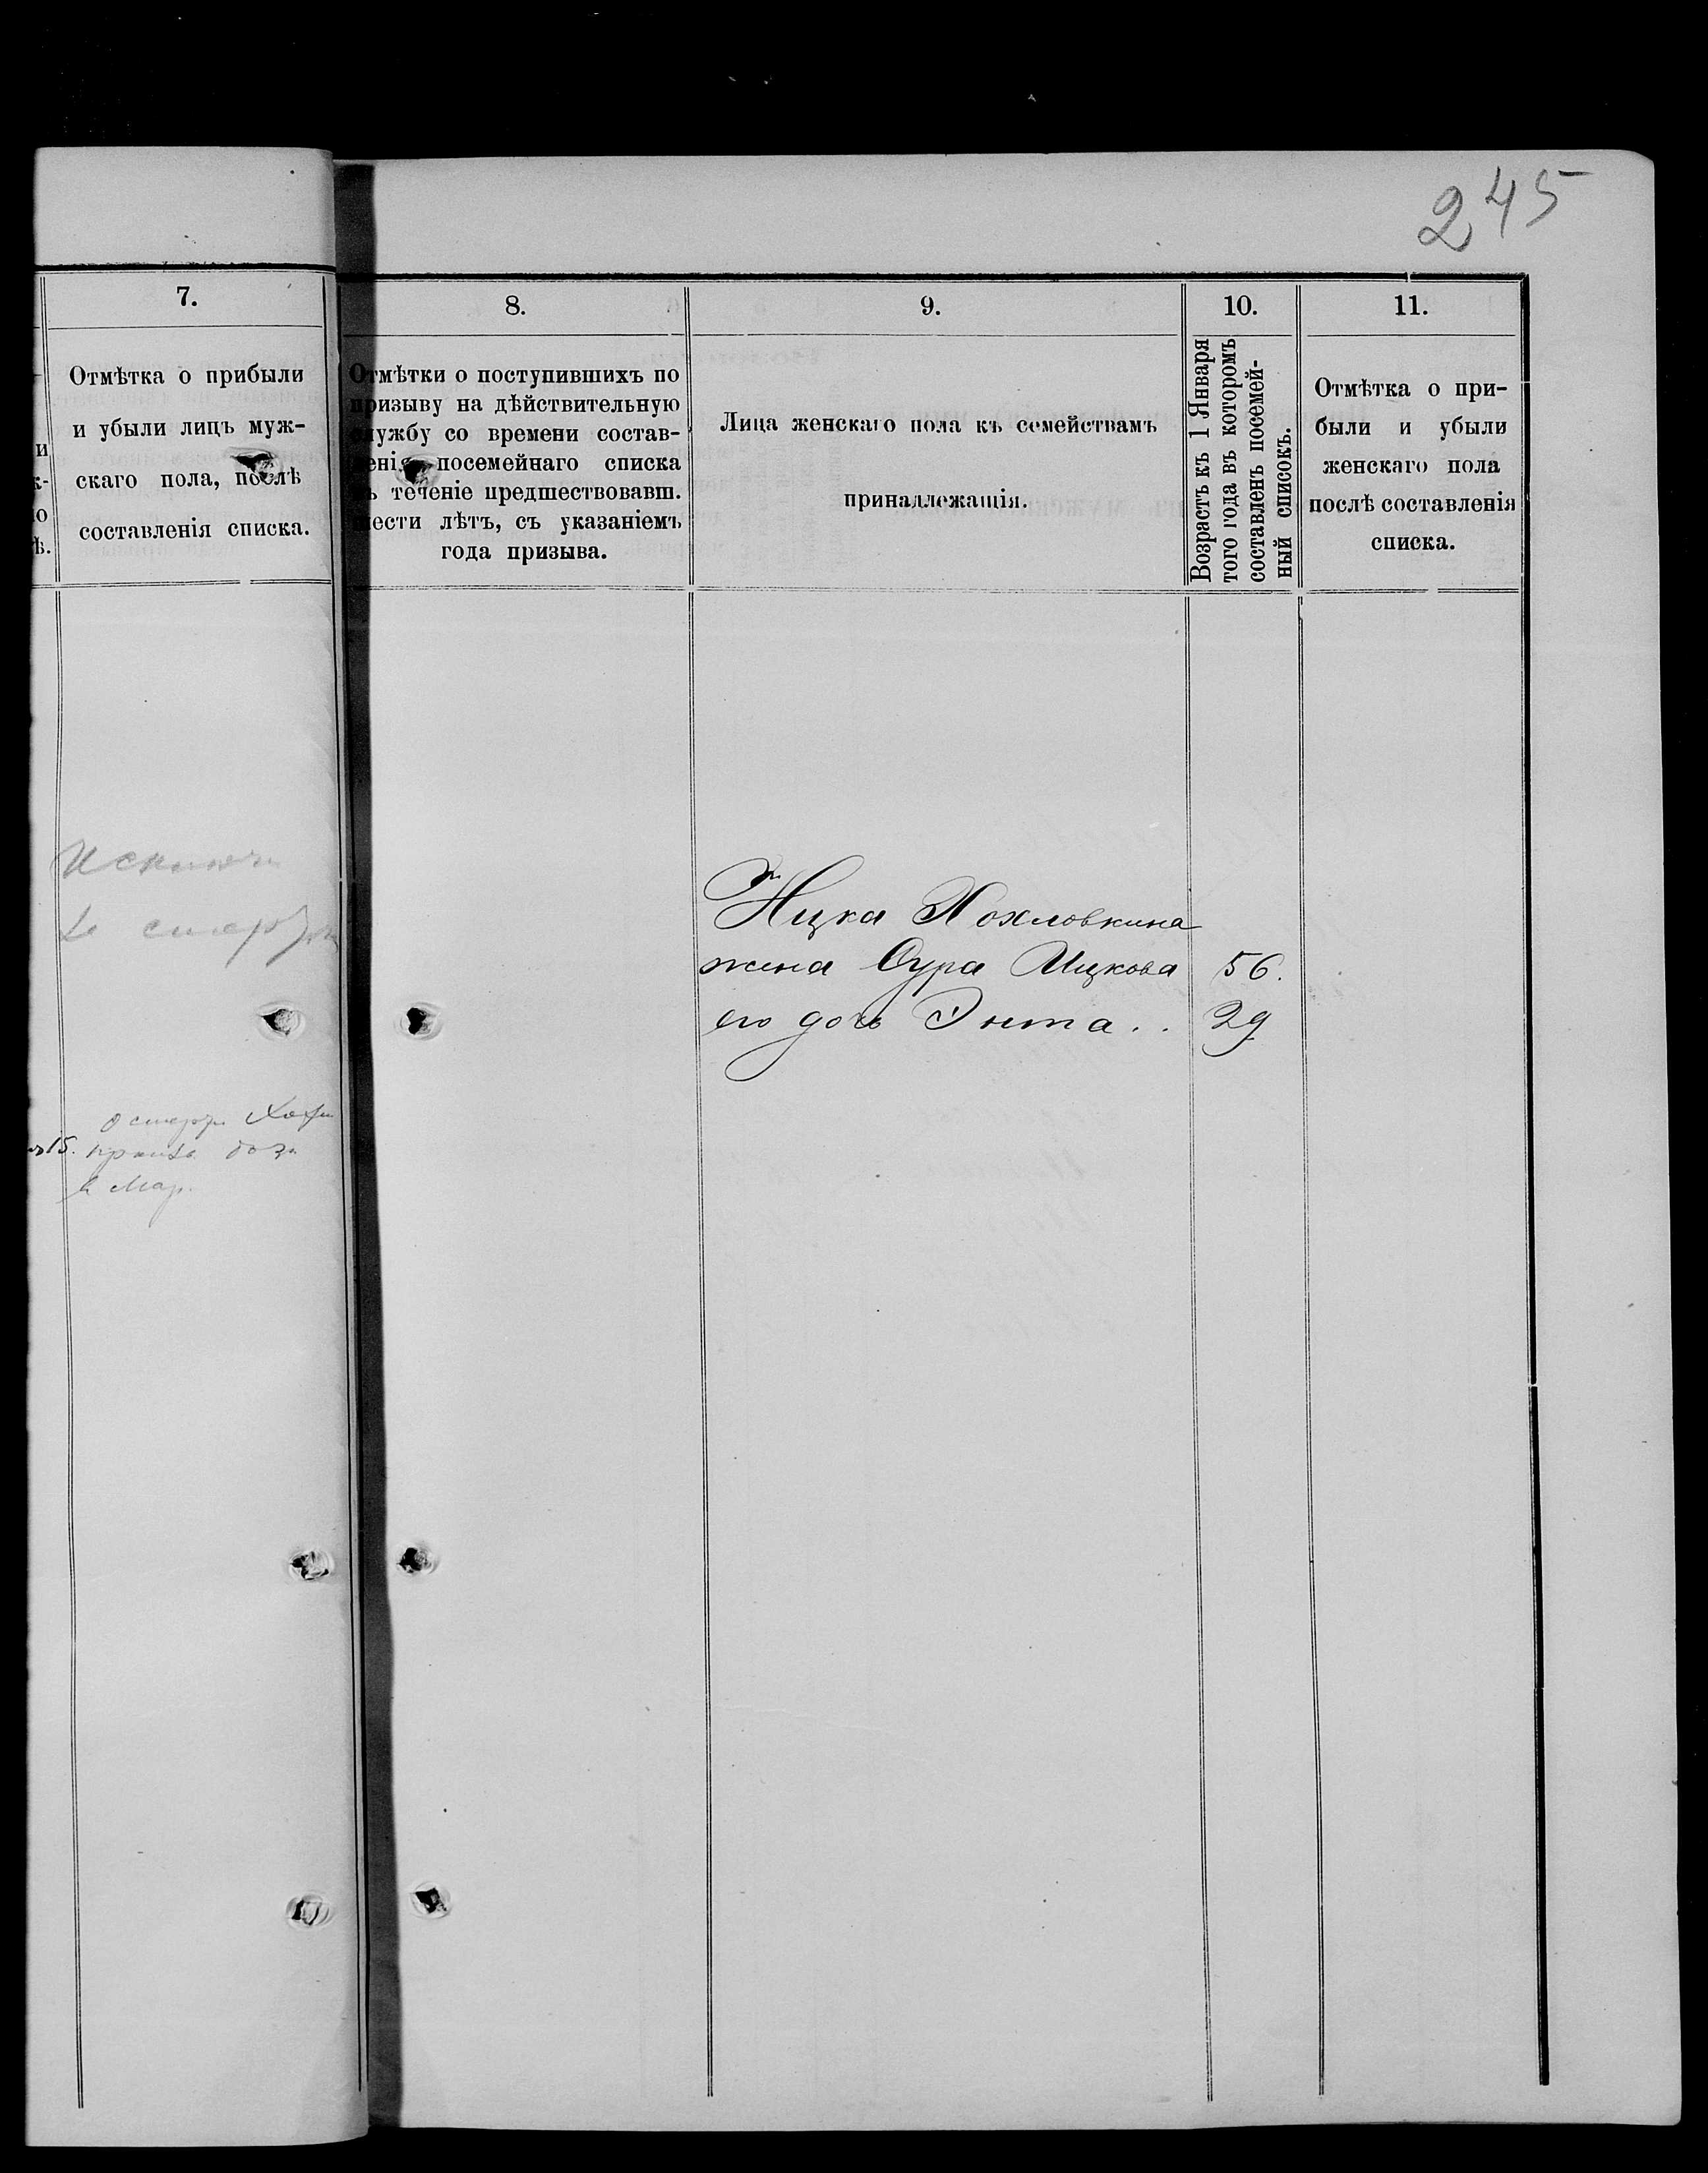 245
7.
Отмѣтка о прибыли
и убыли лицъ муж-
скаго пола, послѣ
составленія списка.
8.
Отмѣтки о поступившихъ по
призыву на дѣйствительную
службу со времени состав-
ленія посемейнаго списка
въ теченіе предшествовавш.
шести лѣтъ, съ указаніемъ
года призыва.
9.
Лица женскаго пола къ семействамъ
принадлежащія.
10.
Возрастъ къ 1 Января
того года въ которомъ
составленъ посемей-
ный списокъ.
11.
Отмѣтка о при-
были и убыли
женскаго пола
послѣ составленія
списка.
Ицка Хохловкина
жена Сура Ицкова 56.
его дочь Энта . . 29
15.